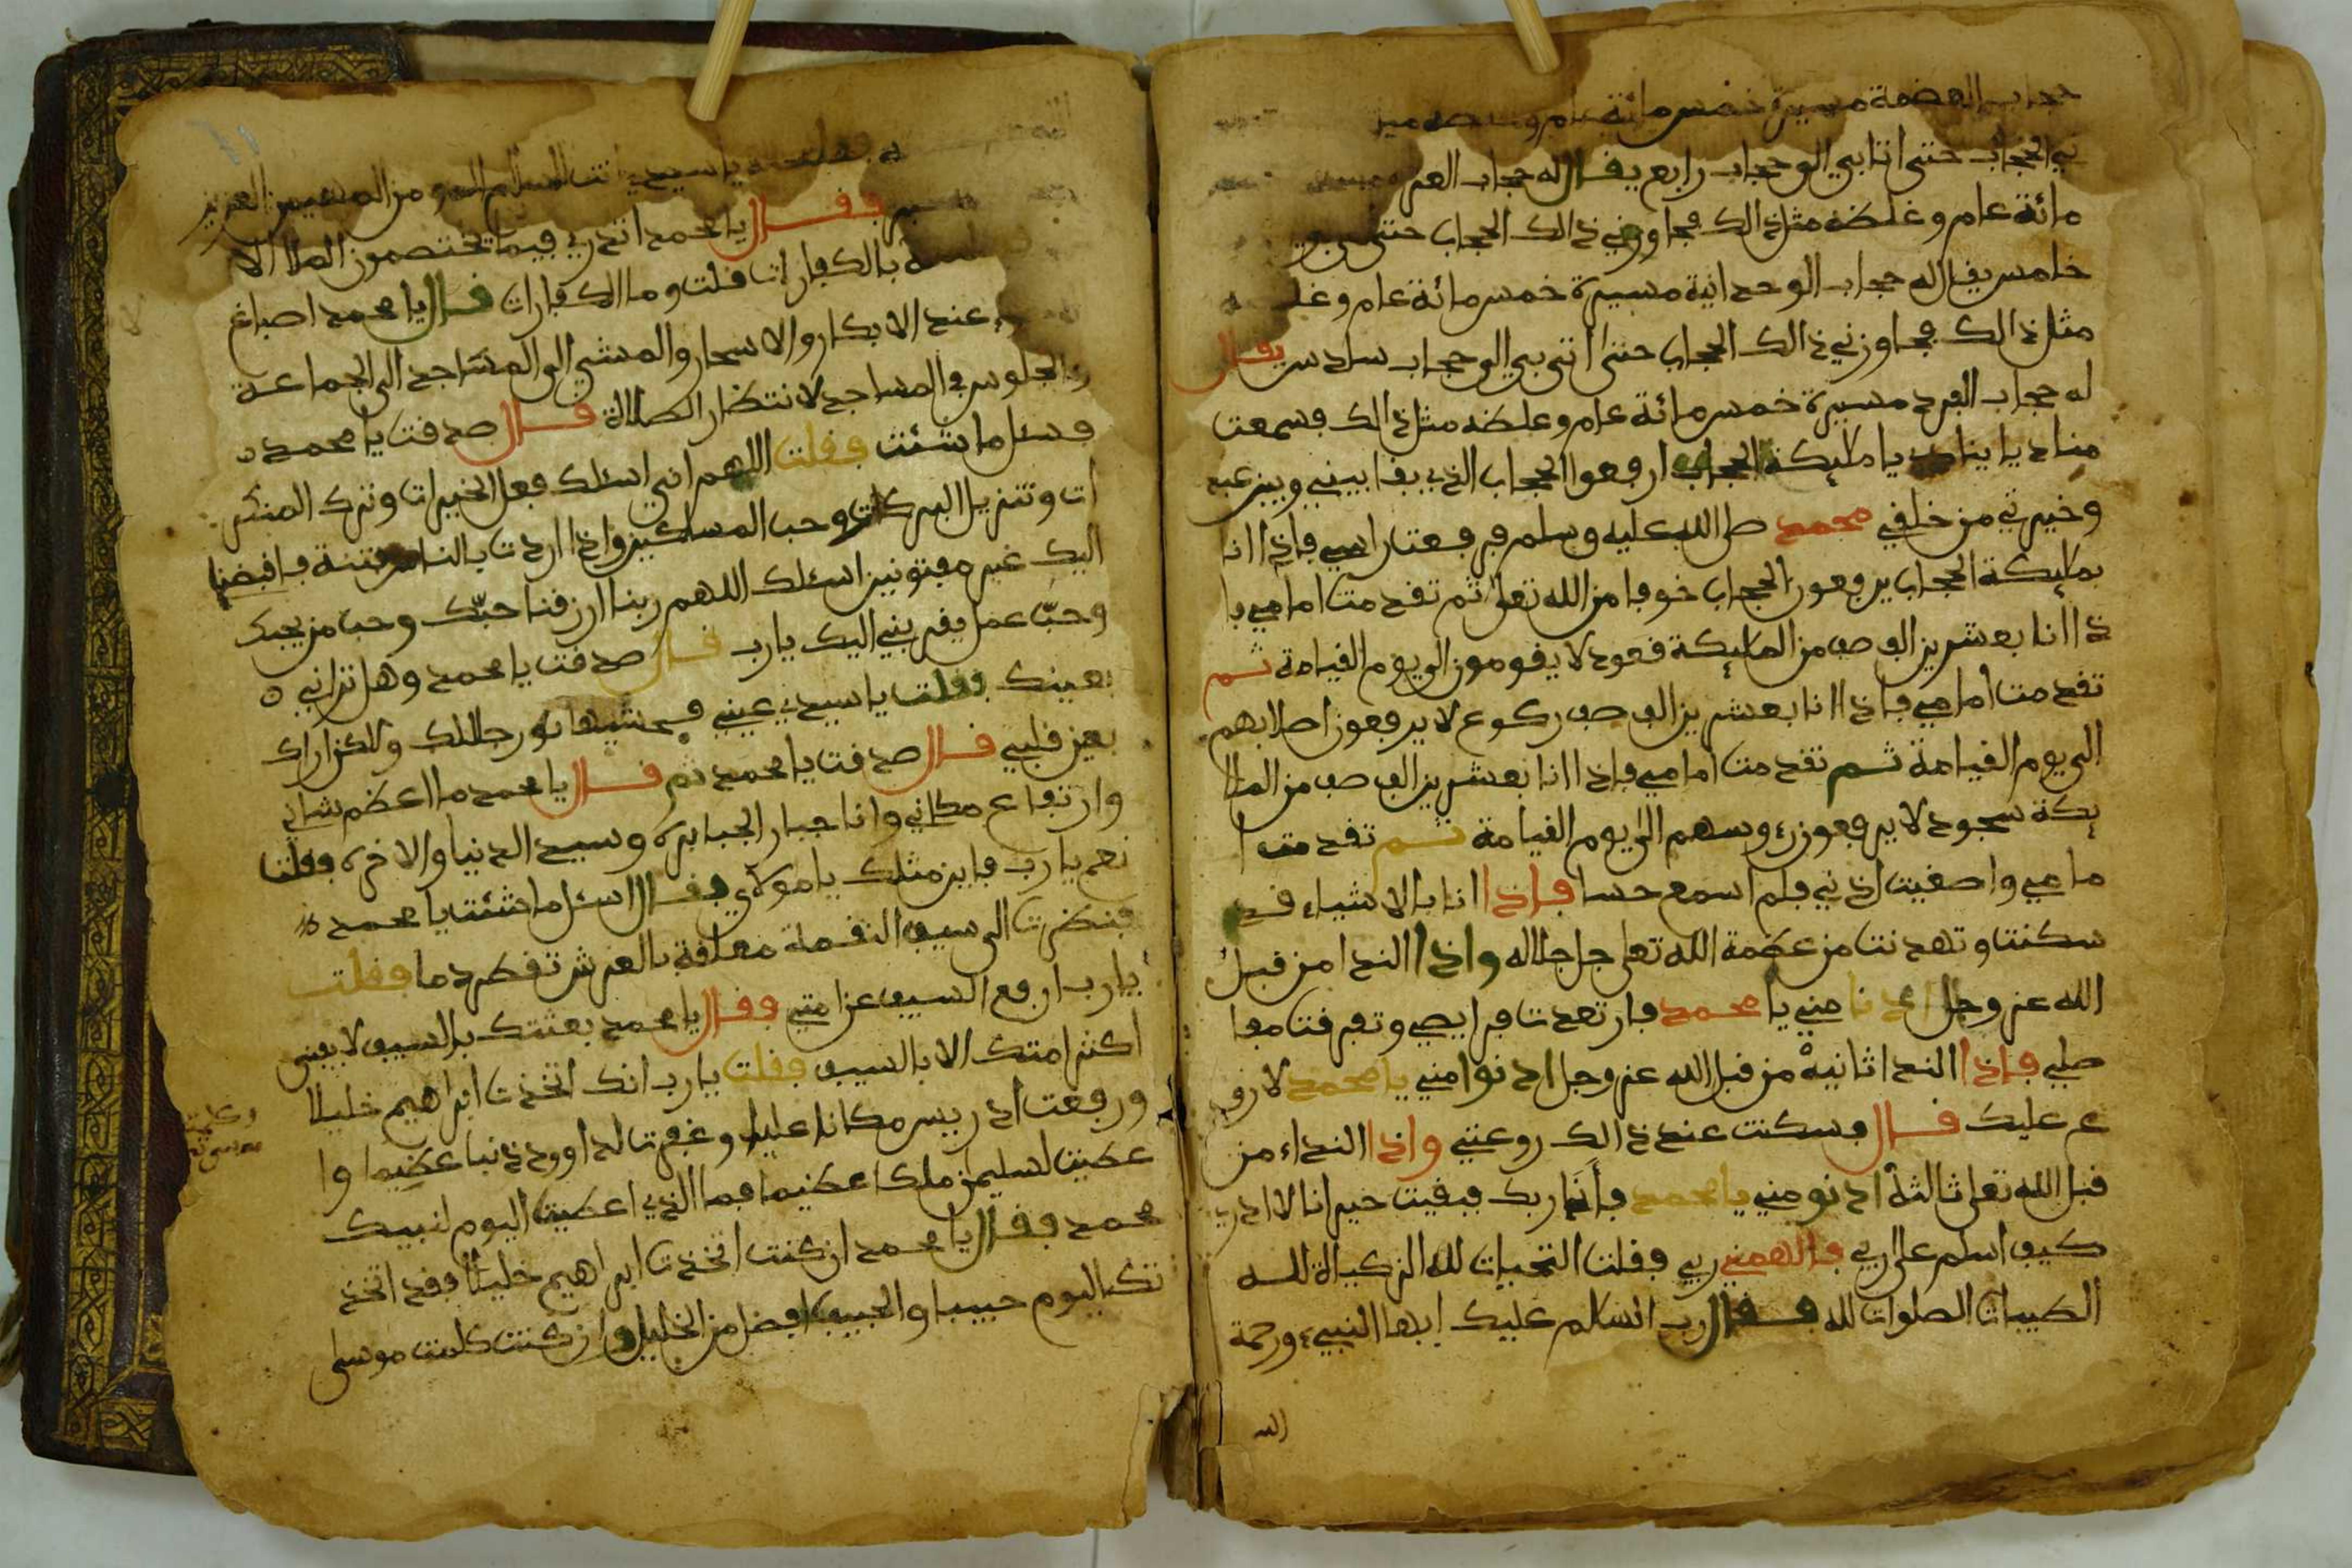 حجاب العضمة مسيرة خمس مائة عام وغلضه
ني الحجاب حتى اتا بي الى حجاب رابع يقال له حجاب العز
مائة عام وغلضه مثل ذالك فجاوزني ذالك الحجاب حتى
خامس يقال له حجاب الوحدانية مسيرة خمس مائة عام وغلضه
مثل ذالك فجاوزني ذالك الحجاب حتى اتى بي الى حجاب سادس يقال
له حجاب الفرد مسيرة خمس مائة عام وغلضه مثل ذالك فسمعت
مناديا ينادي يا مليكة الحجاب ارفعوا الحجاب الذي بقا بيني وبين عبد
وخيرتي من خلقي محمد صلى الله عليه وسلم فرفعت راسي فإذا انا
بمليكة الحجاب يرفعون الحجاب خوفا من الله تعلى ثم تقدمت امامي فا
ذا انا بعشرين الف صف من المليكة قعود لا يقومون الى يوم القيامة ثم
تقدمت امامي فاذا انا بعشرين الف صف ركوع لا يرفعون اصلابهم
الى يوم القيامة ثم تقدمت امامي فإذا انا بعشرين الف صف من الملا
يكة سجود لا يرفعون رءوسهم الى يوم القيامة ثم تقدمت ا
مامي واصغيت اذني فلم اسمع حسا فإذا انا بالاشياء قد
سكنت وتهدنت من عظمة الله تعلى جل جلاله واذا الندا من قبل
الله عز وجل ادنا مني يا محمد فارتعدت فرايصي وتفرقت مفا
صلي فإذا النداثانية من قبل الله عز وجل ادنوا مني يا محمد لا رو
ع عليك قال فسكنت عند ذالك روعتي واذا النداء من
قبل الله تعلى ثالثة ادنو مني يا محمد فأنا ربك فبقيت حيرانا لا ادري
كيف اسلم على ربي فالهمني ربي فقلت التحيات لله الزكيات لله
الطيبات الصلوات لله فقال رب السلام عليك ايها النبيء ورحمة
الله
فقلت يا سيدي انت السلام المومن المهيمن العزيز
فقال يا محمد اتدري فيما تختصمون الملا الا
بالكفارات قلت وما الكفارات قال يا محمد اصباغ
عند الابكار والاسحار والمشي الى المساجد الى الجماعة
والجلوس في المساجد لانتظار الصلاة قال صدقت يا محمد
فسئل ما شئت فقلت اللهم اني اسئلك فعل الخيرات وترك المنكر
ات وتنزيل البركات وحب المساكين واذا اردت بالناس فتنة فاقبضنا
اليك غير مفتونين اسئلك اللهم ربنا ارزقنا حبّك وحب من يحبك
وحبّ عمل يقربني اليك يا رب قال صدقت يا محمد وهل تراني
بعينك فقلت يا سيدي عيني قد غشيها نور جلالك ولكن اراك
بعين قلبي قال صدقت يا محمد ثم قال يا محمد ما اعظم شاني
وارتفاع مكاني وانا جبار الجبابرة وسيد الدنيا والاخرة فقلت
نعم يا رب فاين مثلك يا مولاي فقال اسئل ما شئت يا محمد
فنضرت الى سيف النقمة معلقة بالعرش تقطر دما فقلت
يا رب ارفع السيف عن امتي فقال يا محمد بعثتك بالسيف لا يفنى
اكثر امتك الا بالسيف فقلت يا رب انك اتخذت ابراهيم خليلا
ورفعت ادريس مكانا عليا وغفرت لداوود ذنبا عظيما وا
عطيت لسليمن ملكا عظيما فما الذي اعطيت اليوم لنبيك
محمد فقال يا محمد ان كنت اتخذت ابراهيم خليلا فقد اتخذ
تك اليوم حبيبا والحبيب افضل من الخليل وان كنت كلمت موسى
وكلمت
موسى